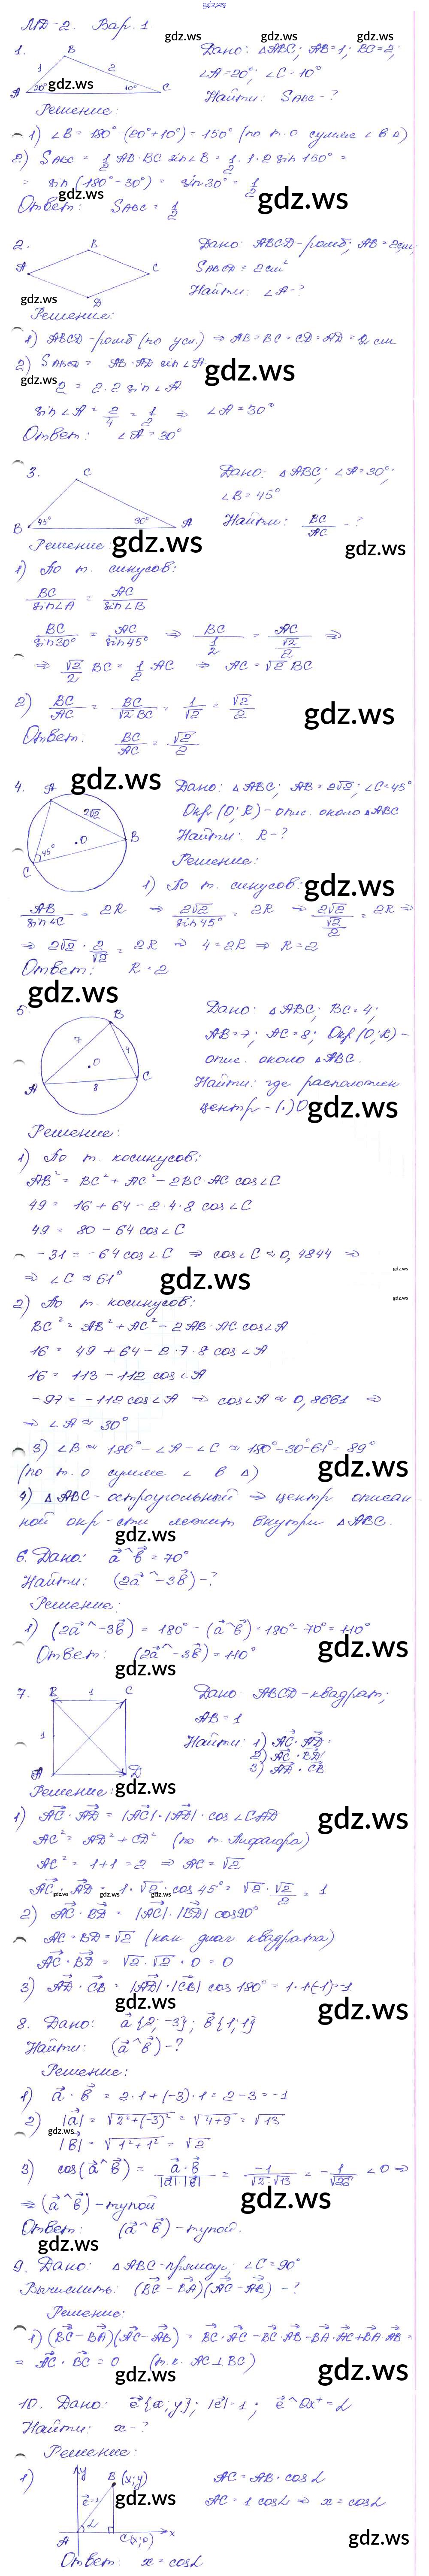 gdz.ws
МД-2. Вар. 1
1. Дано: △ABC; AB=1; BC=2;
∠A=20°; ∠C=10°
Найти: S_ABC - ?
B
1 2
A 20° 10° C
Решение:
1) ∠B = 180°-(20°+10°) = 150° (по т. о сумме ∠ в △)
2) S_ABC = 1/2 AB·BC sin∠B = 1/2·1·2 sin150° =
= sin(180°-30°) = sin30° = 1/2
Ответ: S_ABC = 1/2
2. Дано: ABCD-ромб; AB=2см;
S_ABCD = 2см²
Найти: ∠A-?
B
A C
D
Решение:
1) ABCD-ромб (по усл.) ⇒ AB=BC=CD=AD=2см
2) S_ABCD = AB·AD sin∠A
2 = 2·2 sin∠A
sin∠A = 2/4 = 1/2 ⇒ ∠A=30°
Ответ: ∠A=30°
3. Дано: △ABC; ∠A=30°;
∠B=45°
Найти: BC/AC - ?
C
B 45° 30° A
Решение:
1) По т. синусов:
BC/sin∠A = AC/sin∠B
BC/sin30° = AC/sin45° ⇒ BC/(1/2) = AC/(√2/2) ⇒
⇒ √2/2 BC = 1/2 AC ⇒ AC = √2 BC
2) BC/AC = BC/(√2 BC) = 1/√2 = √2/2
Ответ: BC/AC = √2/2
4. Дано: △ABC; AB=2√2; ∠C=45°
Окр(O;R)-опис. около △ABC
Найти: R-?
A
2√2
O B
C 45°
Решение:
1) По т. синусов:
AB/sin∠C = 2R ⇒ 2√2/sin45° = 2R ⇒ 2√2/(√2/2) = 2R ⇒
⇒ 2√2 · 2/√2 = 2R ⇒ 4=2R ⇒ R=2
Ответ: R=2
5. Дано: △ABC; BC=4;
AB=7; AC=8; Окр(O;R)-
опис. около △ABC.
Найти: где расположен
центр - (·)O
B
7 4
O
A 8 C
Решение:
1) По т. косинусов:
AB² = BC² + AC² - 2BC·AC cos∠C
49 = 16 + 64 - 2·4·8 cos∠C
49 = 80 - 64 cos∠C
-31 = -64 cos∠C ⇒ cos∠C ≈ 0,4844 ⇒
⇒ ∠C ≈ 61°
2) По т. косинусов:
BC² = AB² + AC² - 2AB·AC cos∠A
16 = 49 + 64 - 2·7·8 cos∠A
16 = 113 - 112 cos∠A
-97 = -112 cos∠A ⇒ cos∠A ≈ 0,8661 ⇒
⇒ ∠A ≈ 30°
3) ∠B ≈ 180° - ∠A - ∠C ≈ 180°-30°-61° = 89°
(по т. о сумме ∠ в △)
4) △ABC-остроугольный ⇒ центр описан
ной окр-сти лежит внутри △ABC.
6. Дано: a⃗^b⃗ = 70°
Найти: (2a⃗^-3b⃗)-?
Решение:
1) (2a⃗^-3b⃗) = 180° - (a⃗^b⃗) = 180° - 70° = 110°
Ответ: (2a⃗^-3b⃗) = 110°
7. Дано: ABCD-квадрат;
AB=1
Найти: 1) AC⃗·AD⃗;
2) AC⃗·BD⃗;
3) AD⃗·CB⃗
B 1 C
1
A D
Решение:
1) AC⃗·AD⃗ = |AC⃗|·|AD⃗|·cos∠CAD
AC² = AD² + CD² (по т. Пифагора)
AC² = 1+1 = 2 ⇒ AC = √2
AC⃗·AD⃗ = 1·√2·cos45° = √2·√2/2 = 1
2) AC⃗·BD⃗ = |AC⃗|·|BD⃗| cos90°
AC=BD=√2 (как диаг. квадрата)
AC⃗·BD⃗ = √2·√2·0 = 0
3) AD⃗·CB⃗ = |AD⃗|·|CB⃗| cos180° = 1·1·(-1)=-1
8. Дано: a⃗{2;-3}; b⃗{1;1}
Найти: (a⃗^b⃗)-?
Решение:
1) a⃗·b⃗ = 2·1+(-3)·1 = 2-3 = -1
2) |a⃗| = √(2²+(-3)²) = √(4+9) = √13
|b⃗| = √(1²+1²) = √2
3) cos(a⃗^b⃗) = a⃗·b⃗/|a⃗|·|b⃗| = -1/(√2·√13) = -1/√26 <0 ⇒
⇒ (a⃗^b⃗)-тупой
Ответ: (a⃗^b⃗)-тупой.
9. Дано: △ABC-прямоуг; ∠C=90°
Вычислить: (BC⃗-BA⃗)(AC⃗-AB⃗)-?
Решение:
1) (BC⃗-BA⃗)(AC⃗-AB⃗) = BC⃗·AC⃗-BC⃗·AB⃗-BA⃗·AC⃗+BA⃗·AB⃗ =
= AC⃗·BC⃗ = 0 (т.к. AC⊥BC)
10. Дано: e⃗{x;y}; |e⃗|=1; e⃗^Ox⁺=α
Найти: x-?
Решение:
1) AC = AB·cosα
AC = 1·cosα ⇒ x = cosα
y B(x;y)
e⃗=1
α
A C(x;0) x
Ответ: x = cosα